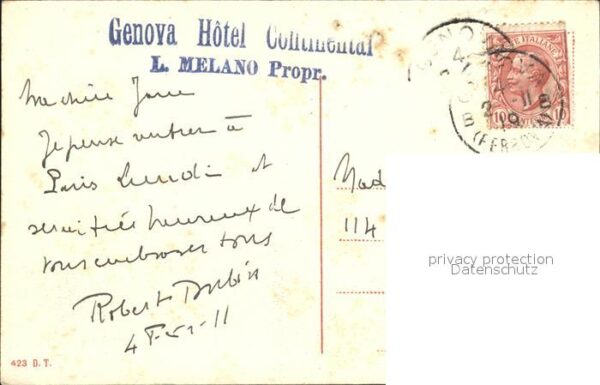 Genova Hôtel Continental
L. MELANO Propr.
Ma chère Jane
Je pense rentrer à
Paris Lundi et
serai très heureux de
vous embrasser tous
Robert
4 Fév-11
Mad
114
POSTE ITALIANE
10
10
GENOVA
(FERROVIA)
privacy protection
Datenschutz
423 D. T.